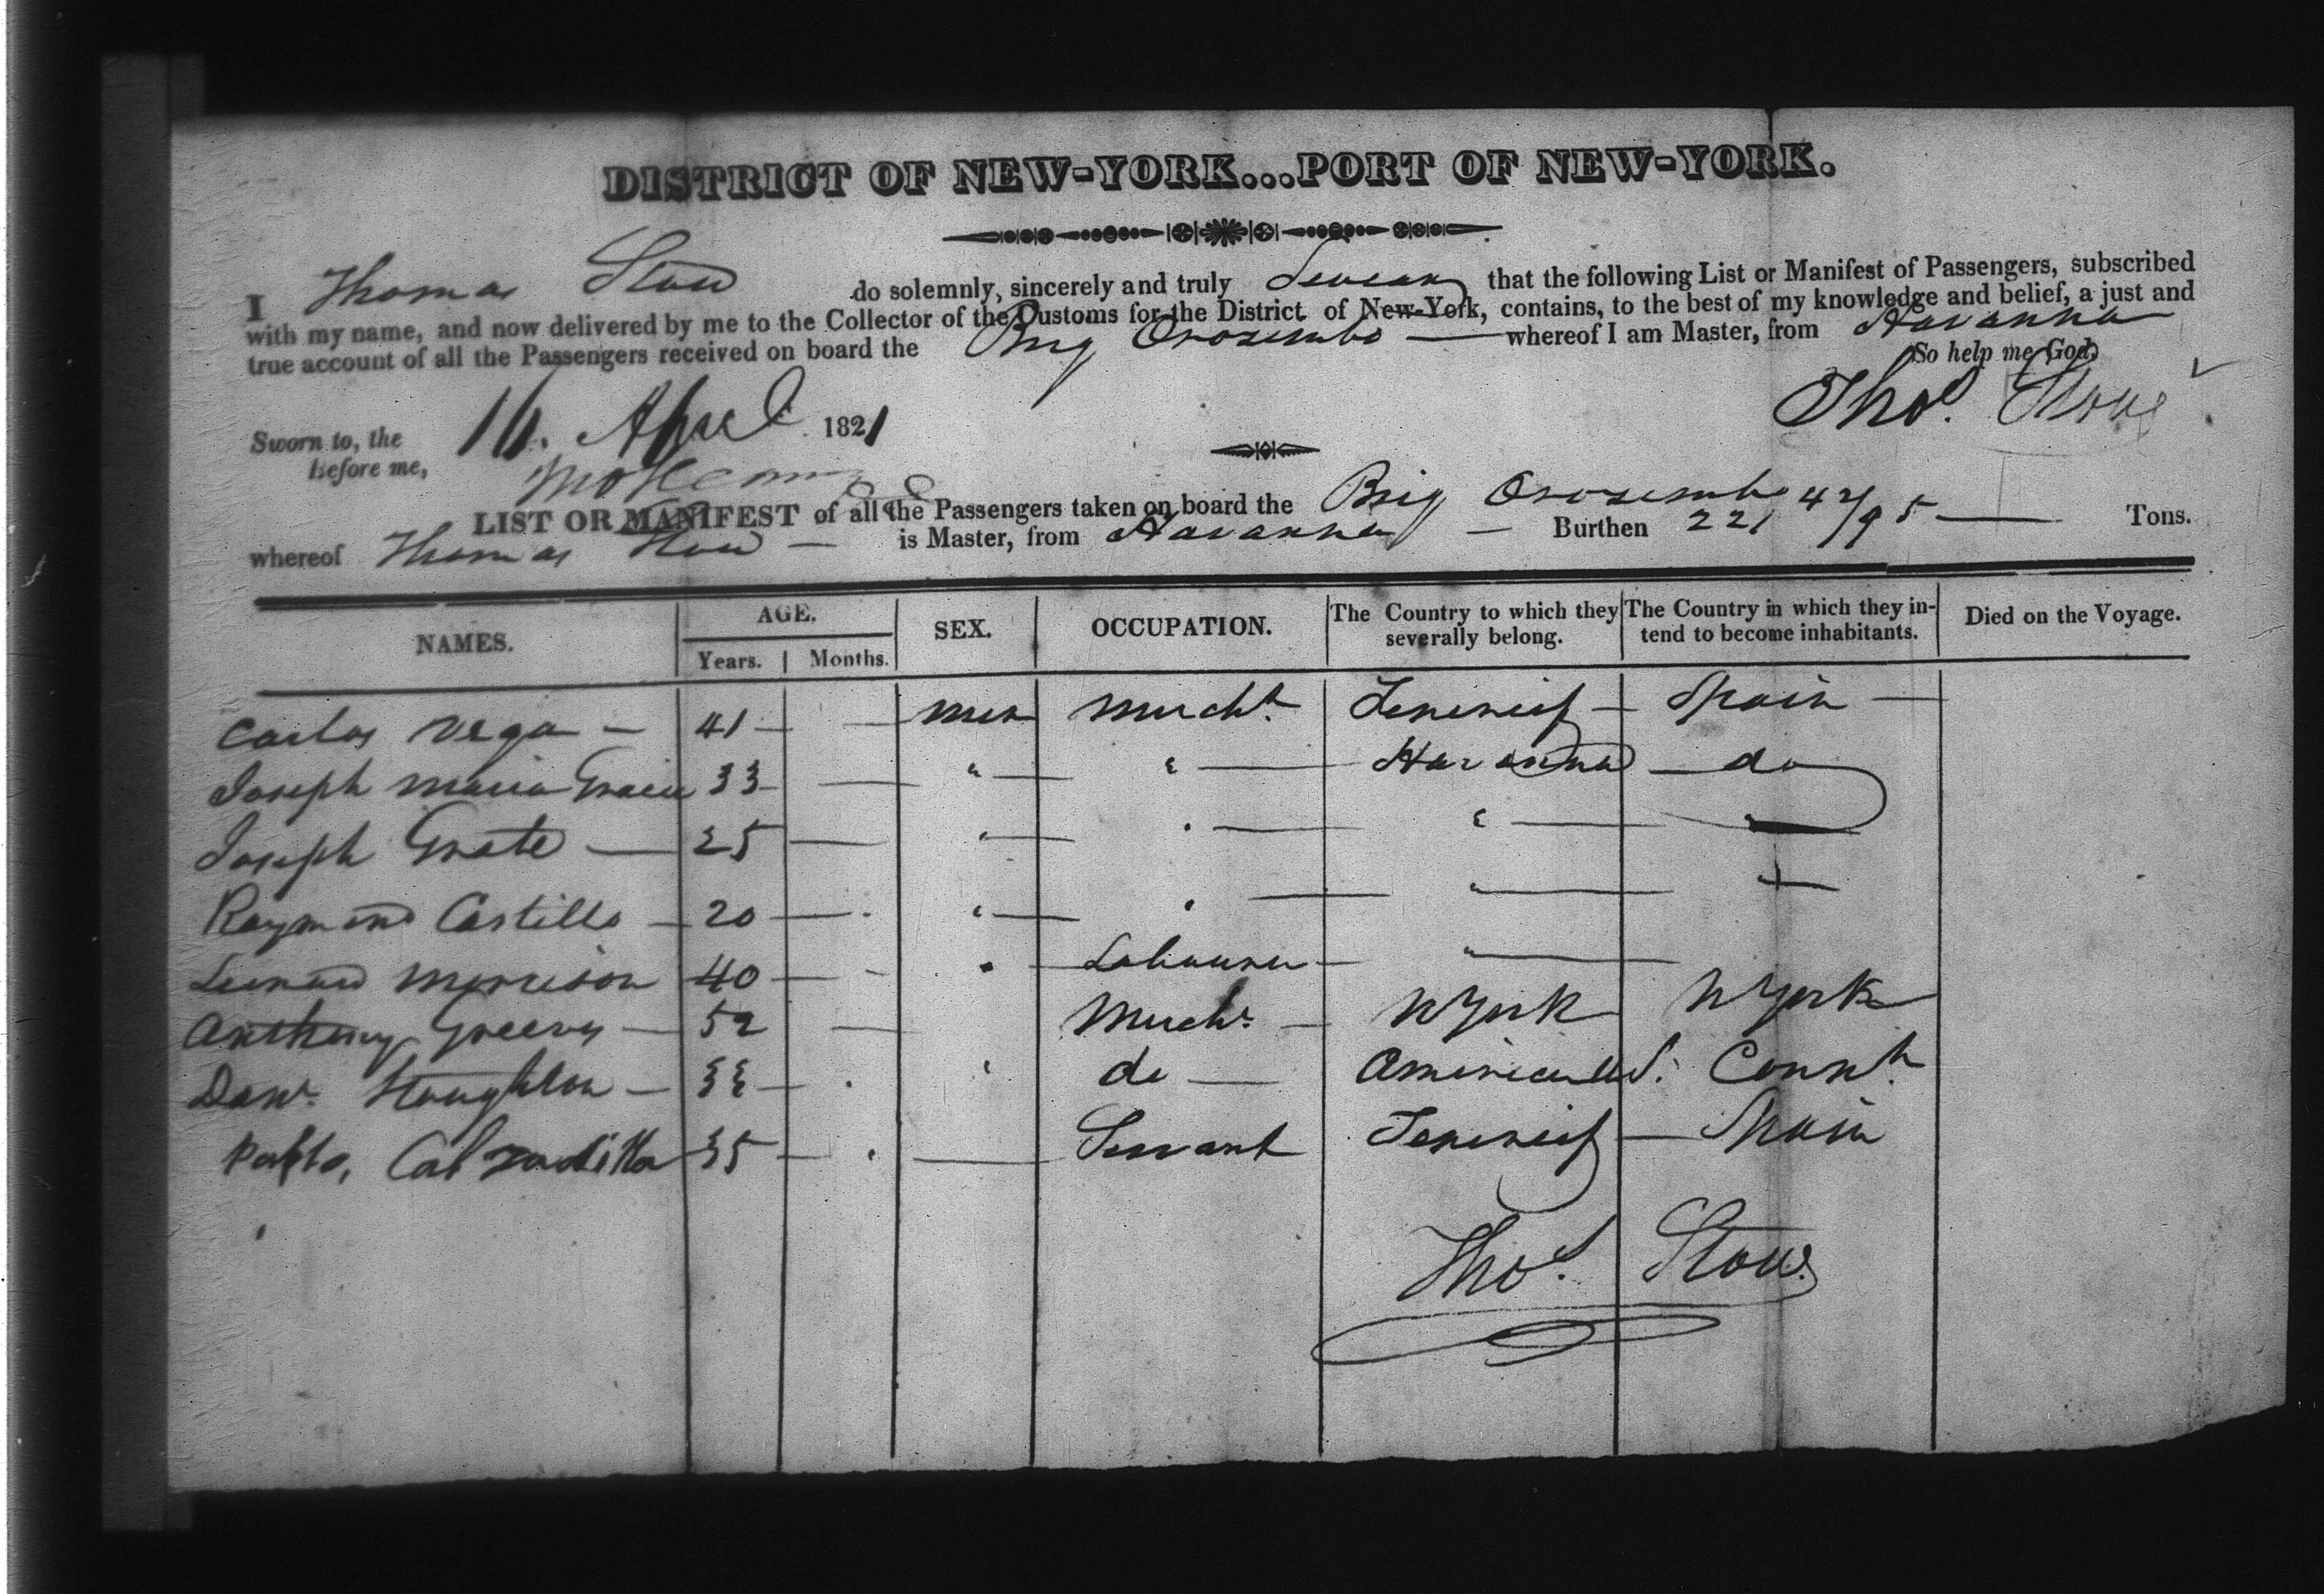 DISTRICT OF NEW-YORK...PORT OF NEW-YORK.
I Thomas Stow do solemnly, sincerely and truly Swear that the following List or Manifest of Passengers, subscribed
with my name, and now delivered by me to the Collector of the Customs for the District of New-York, contains, to the best of my knowledge and belief, a just and
true account of all the Passengers received on board the Brig Orozembo whereof I am Master, from Havanna
So help me God,
Sworn to, the 16. April 1821 Thos. Stow
Before me,
LIST OR MANIFEST of all the Passengers taken on board the Brig Orozembo
whereof Thomas Stow — is Master, from Havanna — Burthen 221 42/95 — Tons.
NAMES. AGE. SEX. OCCUPATION. The Country to which they severally belong. The Country in which they intend to become inhabitants. Died on the Voyage.
Years. Months.
Carlos Vega — 41 — men Mercht. Teneriff — Spain —
Joseph Maria 33 — " — " — Havanna — do
Joseph — 25 — " — " — " — "
Raymond Castillo — 20 — " — " — " —
Leonard Morrison 40 — " Labourer — " —
Anthony — 52 — Mercht. — N York N York
Danl. Houghton — 33 — " do — American Connt.
Pablo, Calzadilla 35 — — Servant Teneriff — Spain
Thos. Stow